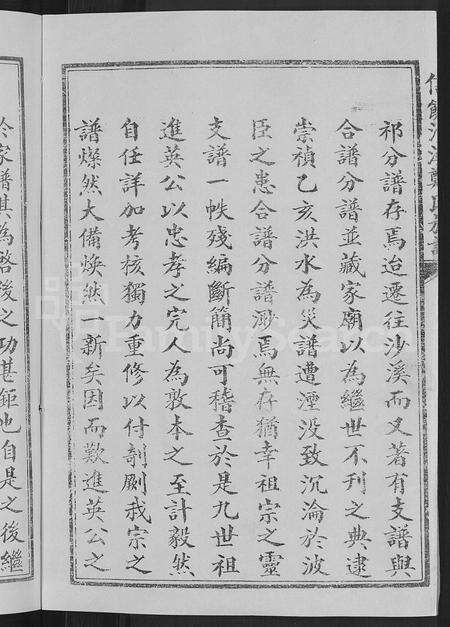 鄭氏
祁分譜存焉迨遷往沙溪而又著有支譜與
合譜分譜並藏家廟以為繼世不刊之典逮
崇禎乙亥洪水為災譜遭湮没致沉淪於波
臣之患合譜分譜渺焉無存猶幸祖宗之靈
支譜一帙殘編斷簡尚可稽查於是九世祖
進英公以忠孝之完人為敦本之至計毅然
自任詳加考核獨力重修以付剞劂我宗之
譜燦然大備煥然一新矣因而歎進英公之
家譜其為啓後之功甚鉅也自是之後繼
FamilySearch